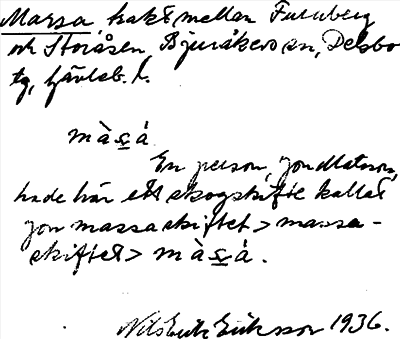 Massa kake mellan Furuberg
och Storåsen, Bjuråkers sn, Delsbo
tg, Hävleb. l.
màs̲á
En person, Jon Matsson,
hade här ett skogskifte kallat
Jon massaskiftet > massa-
skiftet > màs̲á.
Nils Erik Eriksson 1936.